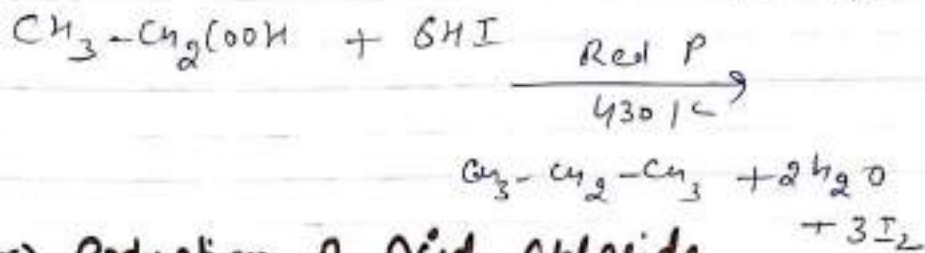 CH3-CH2COOH + 6HI
Red P
430 K
CH3-CH2-CH3 + 2H2O
+ 3I2
Reduction of Acid chloride